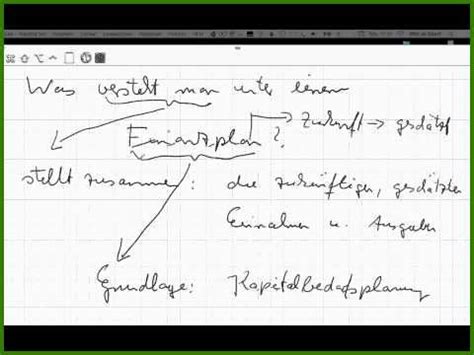 Was versteht man unter einem
Finanzplan? Zukunft → geschätzt
stellt zusammen: die zukünftigen, geschätzten
Einnahmen u. Ausgaben
Grundlage: Kapitalbedarfsplanung